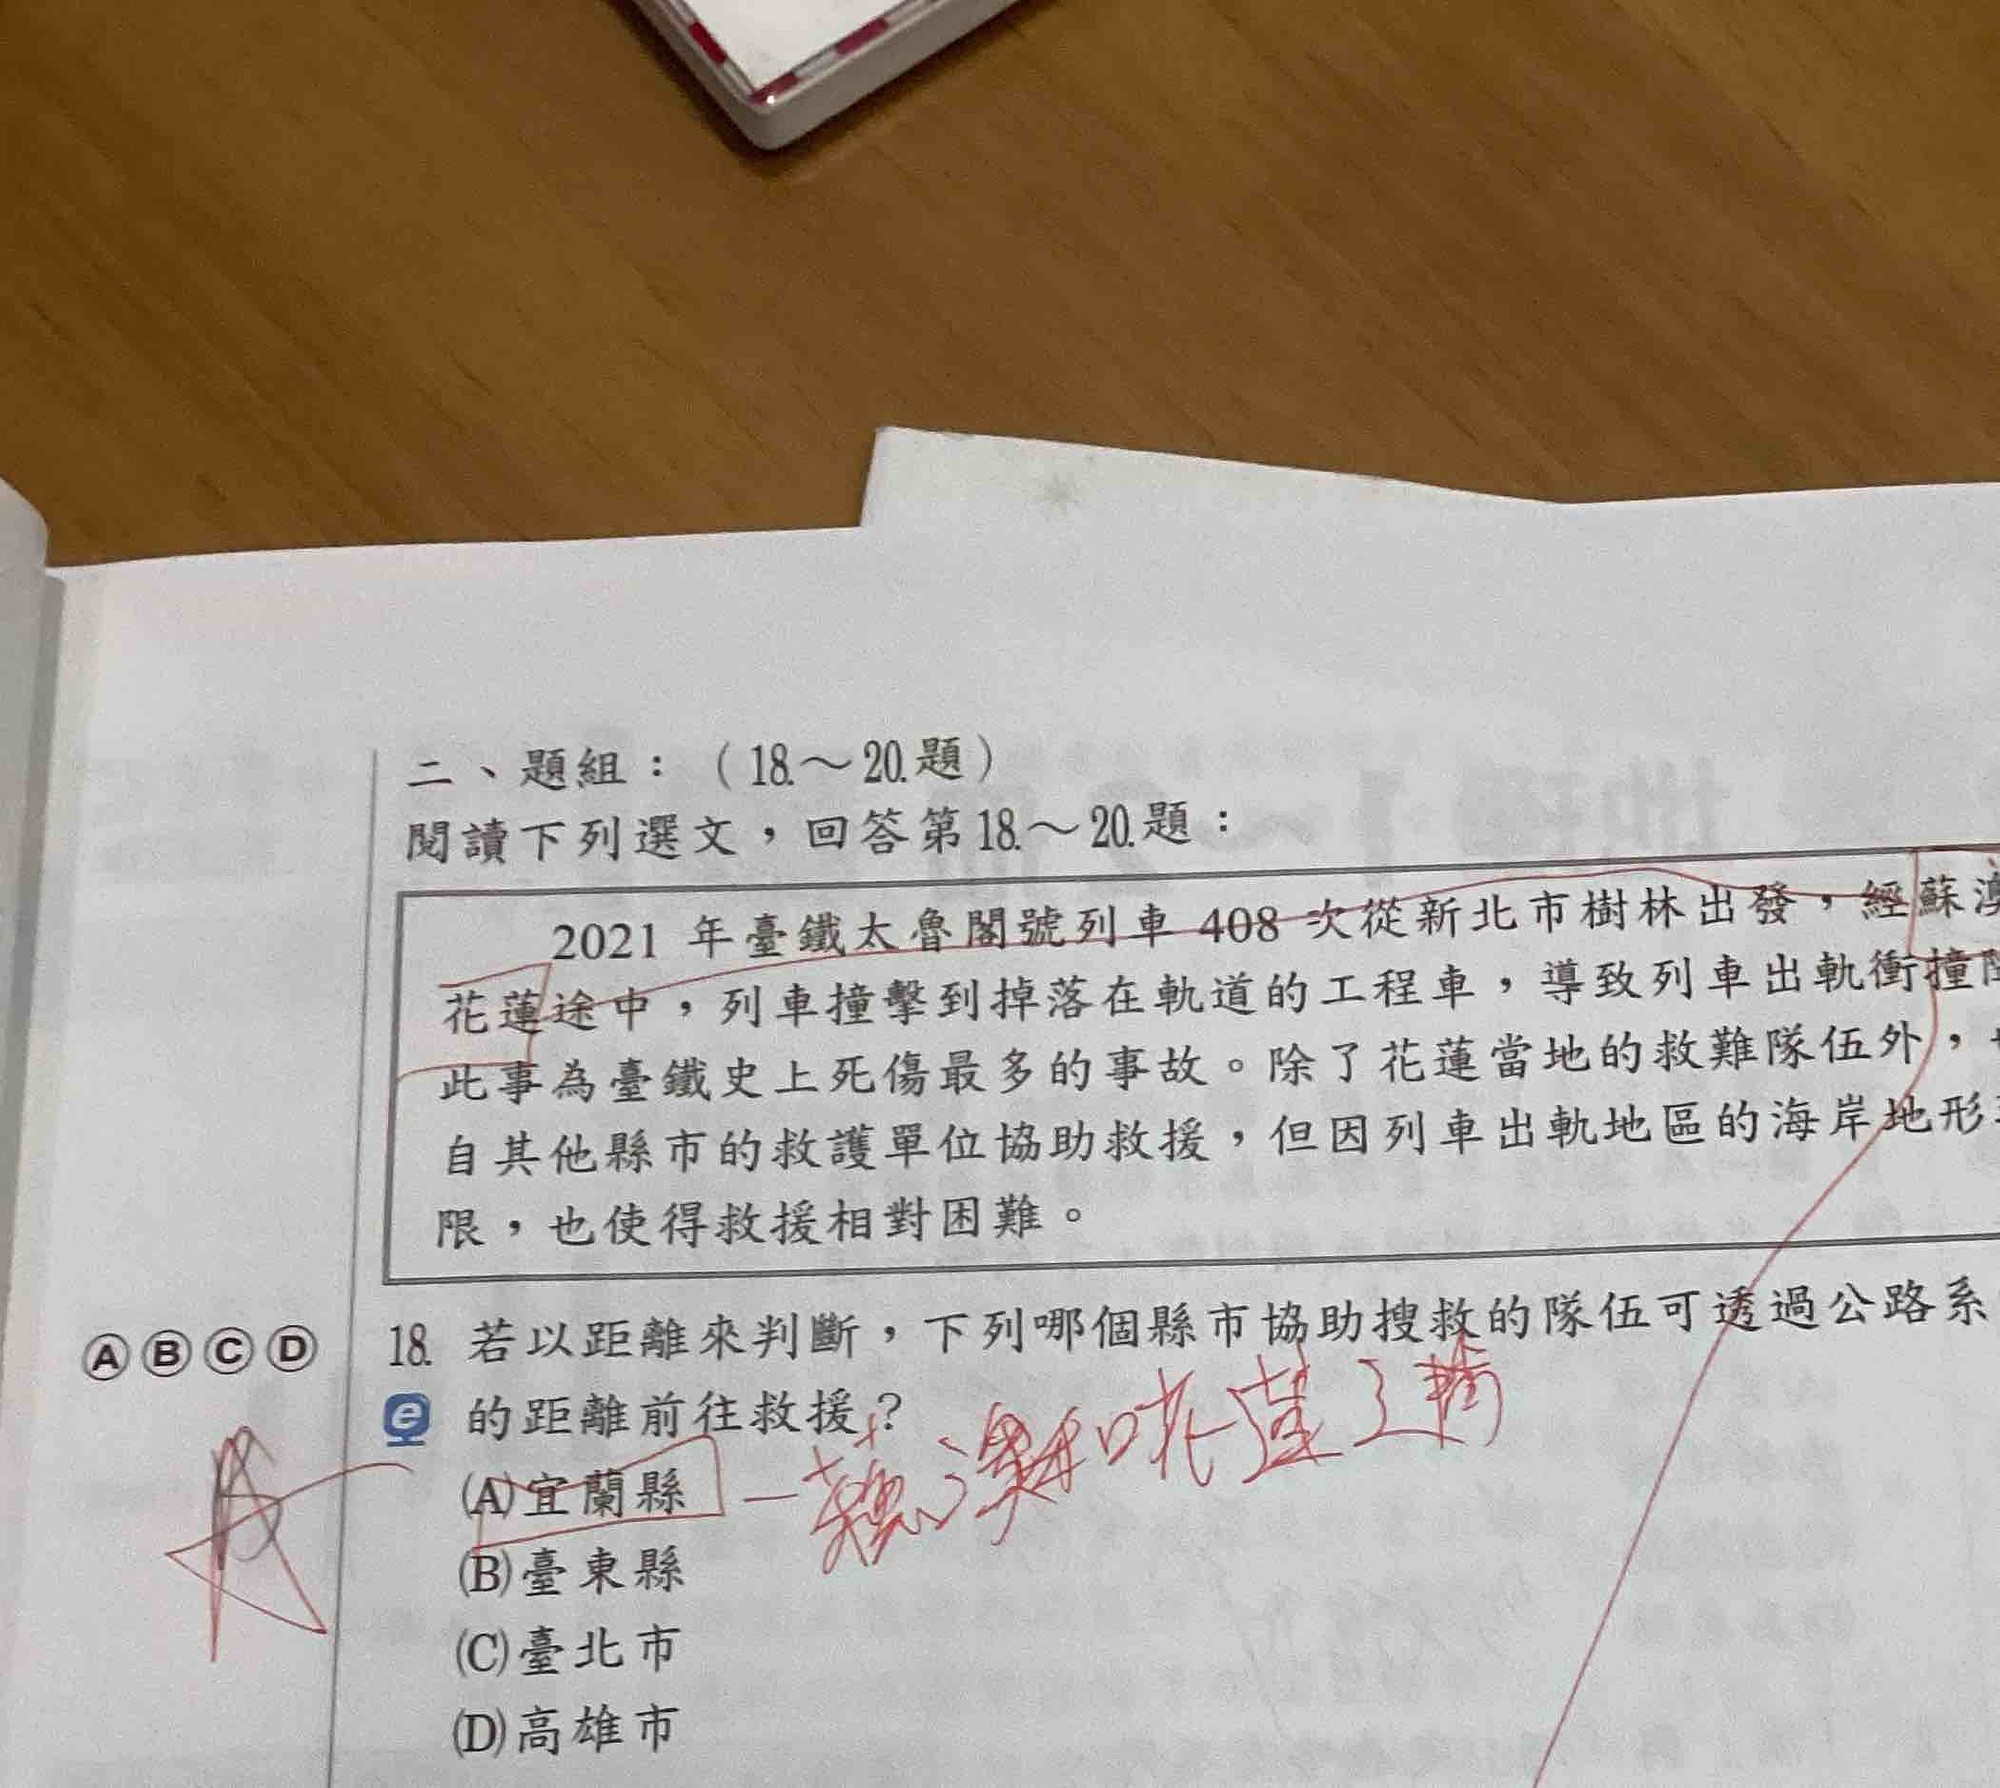 二、題組：（18.～20.題）
閱讀下列選文，回答第18.～20.題：
2021 年臺鐵太魯閣號列車 408 次從新北市樹林出發，經蘇澳
花蓮途中，列車撞擊到掉落在軌道的工程車，導致列車出軌衝撞
此事為臺鐵史上死傷最多的事故。除了花蓮當地的救難隊伍外，
自其他縣市的救護單位協助救援，但因列車出軌地區的海岸地形
限，也使得救援相對困難。
Ⓐ Ⓑ Ⓒ Ⓓ 18. 若以距離來判斷，下列哪個縣市協助搜救的隊伍可透過公路系
的距離前往救援？
(A)宜蘭縣
(B)臺東縣
(C)臺北市
(D)高雄市